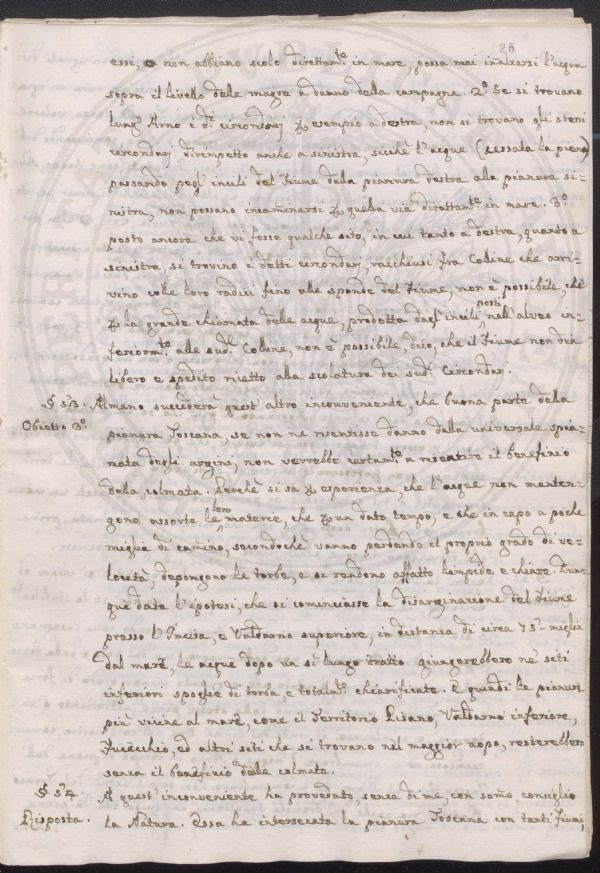 25
essi, o non abbiano scolo direttam.te in mare, possa mai inalzarsi l'acqua
sopra il livello delle magre a danno della campagna. 2.o Se si trovano
lung' Arno i d.i circondarj p esempio a destra, non si trovano gli stessi
circondarj dirimpetto anche a sinistra, sicchè l'acque (cessata la piena)
passando pegl' incili del Fiume dalla pianura destra alla pianura si-
nistra, non possano incaminarsi p quella via direttam.te in mare. 3.o
posto ancora che vi fosse qualche sito, in cui tanto a destra, quanto a
sinistra, si trovino i detti circondarj, racchiusi fra Colline che arri-
vino colle loro radici fino alle sponde del Fiume, non è possibile, che
p la grande chiamata delle acque, prodotta dagl' incili posti nell' alveo in-
feriorm.te alle sud.e Colline, non è possibile, dico, che il Fiume non dia
libero e spedito ricetto alla scolatura dei sud.i Circondarj.
§ 53. Almeno succederà quest' altro inconveniente, che buona parte della
Obietto 3.o pianura Toscana, se non ne risentisse danno dalla universale spia-
nata degli argini, non verrebbe certam.te a risentire il benefizio
della colmata. Perchè si sa p esperienza, che l'acque non manten-
gono assorte le loro materie, che p un dato tempo, e che in capo a poche
miglia di camino, secondochè vanno perdendo il proprio grado di ve-
locità, depongono le torbe, e si rendono affatto limpide e chiare. Dun-
que data l'ipotesi, che si cominciasse la disarginazione del Fiume
presso l'Incisa, e Valdarno superiore, in distanza di circa 75 miglia
dal mare, le acque dopo un sì lungo tratto giungerebbero ne' siti
inferiori spoglie di torba e totalm.te chiarificate. E quindi le pianure
più vicine al mare, come il Territorio Pisano, Valdarno inferiore,
Fucecchio, ed altri siti che si trovano nel maggior uopo, resterebbero
senza il benefizio delle colmate.
§ 54. A quest' inconveniente ha proveduto, senza di me, con somo consiglio
Risposta. la Natura. Essa ha intersecata la pianura Toscana con tanti fiumi,